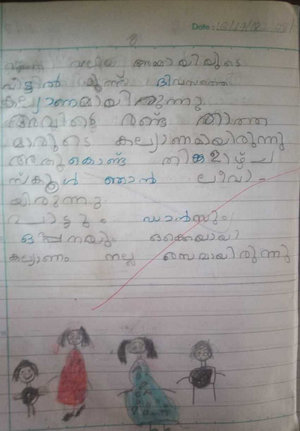 Date :
എന്റെ വല്യ അമ്മായിയുടെ
വീട്ടിൽ മൂന്ന് ദിവസത്തെ
കല്യാണമായിരുന്നു.
അവിടെ രണ്ട് താത്ത
മാരുടെ കല്യാണമായിരുന്നു
അതുകൊണ്ട് തിങ്കളാഴ്ച
സ്കൂൾ ഞാൻ ലീവാ
യിരുന്നു
പാട്ടും ഡാൻസും
ഒപ്പനയും ഒക്കെയായി
കല്യാണം നല്ല രസമായിരുന്നു